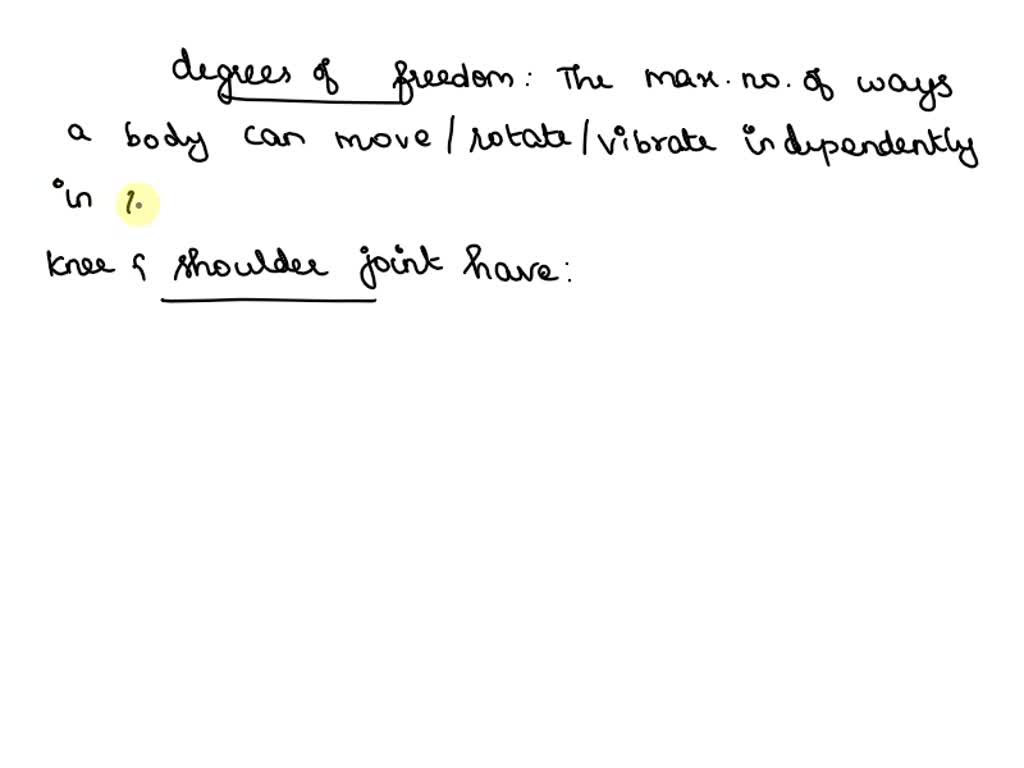 degrees of freedom: The max. no. of ways
a body can move/rotate/vibrate independently
in
knee & shoulder joint have: